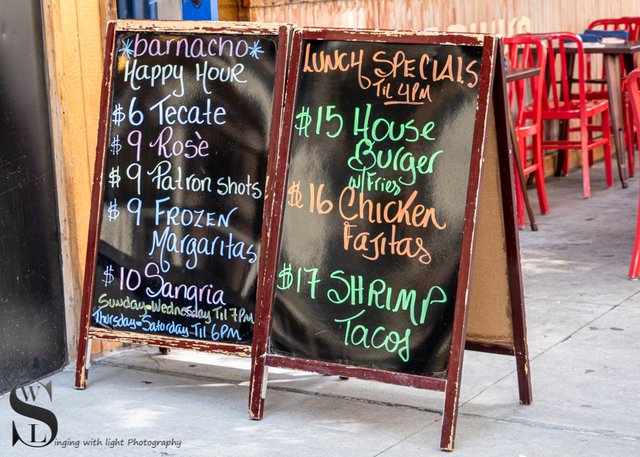 *barnacho*
Happy Hour
$6 Tecate
$9 Rosè
$9 Patron shots
$9 Frozen
Margaritas
$10 Sangria
Sunday-Wednesday Til 7pm
Thursday-Saturday Til 6pm
Lunch Specials
Til 4pm
$15 House
Burger
w/Fries
$16 Chicken
Fajitas
$17 Shrimp
Tacos
SWL
inging with light Photography